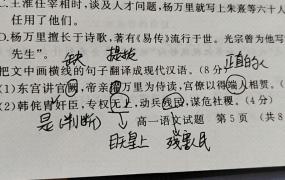 C.王淮任宰相时,谈及人才问题,杨万里就写上朱熹等六十人
任用了他们。
D.杨万里擅长于诗歌,著有《易传》流行于世。光宗曾为他写
先生”。
缺 提拔 正直的人
把文中画横线的句子翻译成现代汉语。(8分)
(1)东宫讲官阙,帝亲擢万里为侍读,宫僚以得端人相贺。(
(2)韩侂胄奸臣,专权无上,动兵残民,谋危社稷。(4分)
是(判断) 高一语文试题 第5页(共8
目无皇上 残害人民